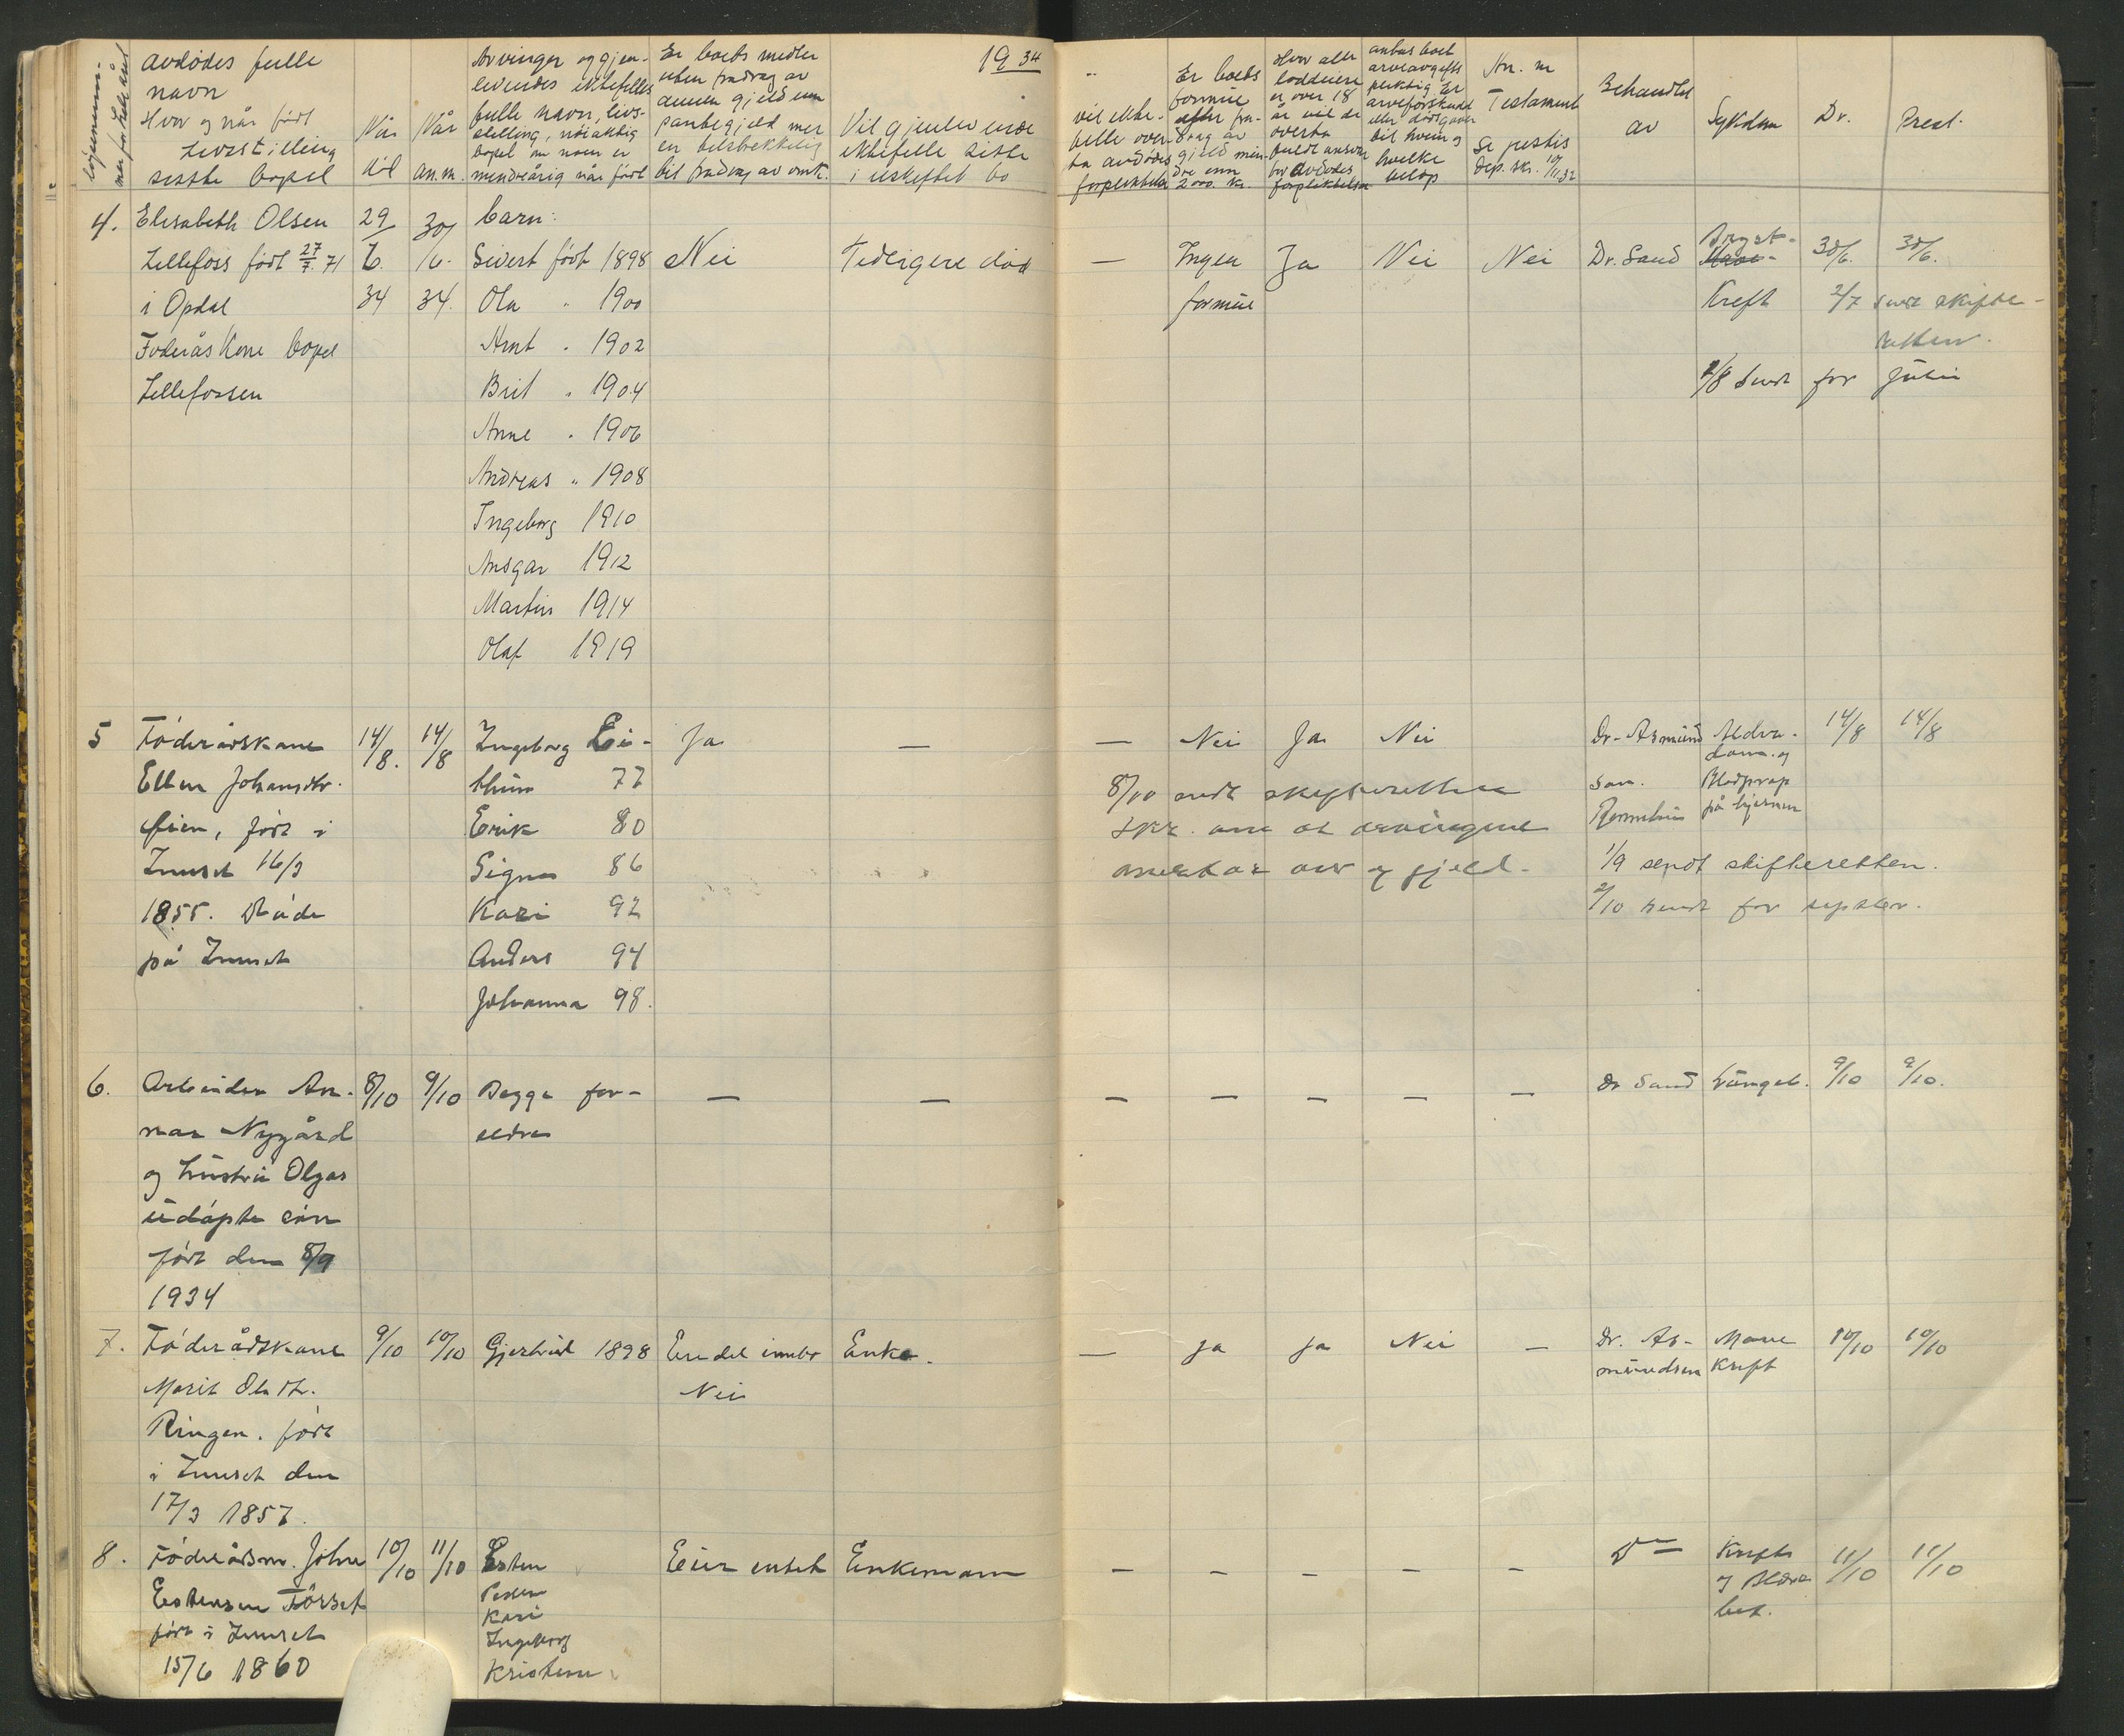 avdödes fulle
navn
Hvor og når födt
Livsstilling
sisste bopel
Når
död
Når
an.m.
Arvinger og gjen-
levendes ektefelles
fulle navn, livs-
stilling, nöiaktig
bopel om noen er
mindreårig når födt
Er boets midler
uten fradrag av
annen gjeld enn
pantegjeld mer
en tilstrekkelig
til fradrag av omk.
1934
Vil gjenlevende
ektefelle sitte
i uskiftet bo
vil ekte-
felle over-
ta avdödes
forpliktelser
Er boets
formue
efter fra-
drag av
gjeld min-
dre enn
2000 kr.
Hvor alle
loddeiere
er over 18
år vil de
overta
fuldt ansvar
for avdödes
forpliktelser
arveavgifts
pliktig Er
arveforskudd
eller dödsgaver
til hvem og
hvilke
belöp
An. m
Testament
Se justis
dep. skr. 10/11.32
Behandlet
av
Sykdom
Dr.
Prest.
4.
Elisabeth Olsen
Lillefoss födt 27/7. 71
i Opdal
Foderåskone bopel
Lillefossen
29
6.
34
30/
6.
34.
barn:
Sivert födt 1898
Ola " 1900
Arnt " 1902
Brit " 1904
Anne " 1906
Andreas " 1908
Ingeborg 1910
Ansgar 1912
Martin 1914
Olaf 1919
Nei
Tidligere död
—
Ingen
formue
Ja
Nei
Nei
Dr. Sand
Bryst-
Kreft
30/6.
30/6.
2/7 sendt skifte-
retten.
2/8 sendt for juli
5
Föderådskone
Ellen Johansdtr.
Öien, födt i
Innset 16/3
1855. Döde
på Innset
14/8.
14/8
Ingeborg Ei-
thun 77
Erik 80
Signe 86
Kari 92
Anders 94
Johanna 98.
Ja
—
—
Nei
Ja
Nei
8/10 sendt skifteretten
skr. om at arvingene
overtar arv og gjeld.
Dr. Asmund
sen.
Rennebu
Aldre-
dom. og
Blodprop
på hjernen
14/8
14/8
1/9 sendt skifteretten.
2/10 sendt for septbr.
6.
Arbeider Ar-
nar Nygård
og hustru Olgas
udöpte sön
födt den 8/9
1934
8/10
9/10
Begge for-
eldre
—
—
—
—
—
—
—
Dr Sand
9/10
9/10.
7.
Föderådskone
Marit Olsdtr.
Ringen. födt
i Innset den
17/3 1857.
9/10
10/10
Gjertrud 1898
En del innbo
Nei
Enke.
—
Ja
Ja
Nei
—
Dr. As-
mundsen
Mave
Kreft
10/10
10/10
8.
Föderådsm. John
Estensen Törset
födt i Innset
15/6 1860
10/10
11/10
Esten
Peder
Kari
Ingeborg
Kristine
Eier intet
Enkemann
—
—
—
—
—
Do
Kreft
11/10
11/10